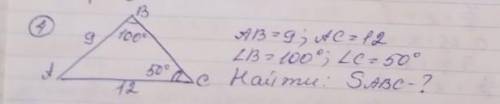 ④
B
9
100°
A
50°
C
12
AB = 9; AC = 12
∠B = 100°; ∠C = 50°
Найти: SABC - ?